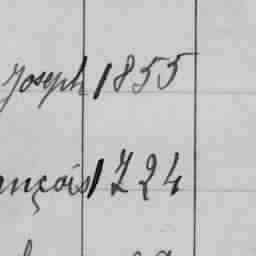 Joseph 1855
ançois 1724